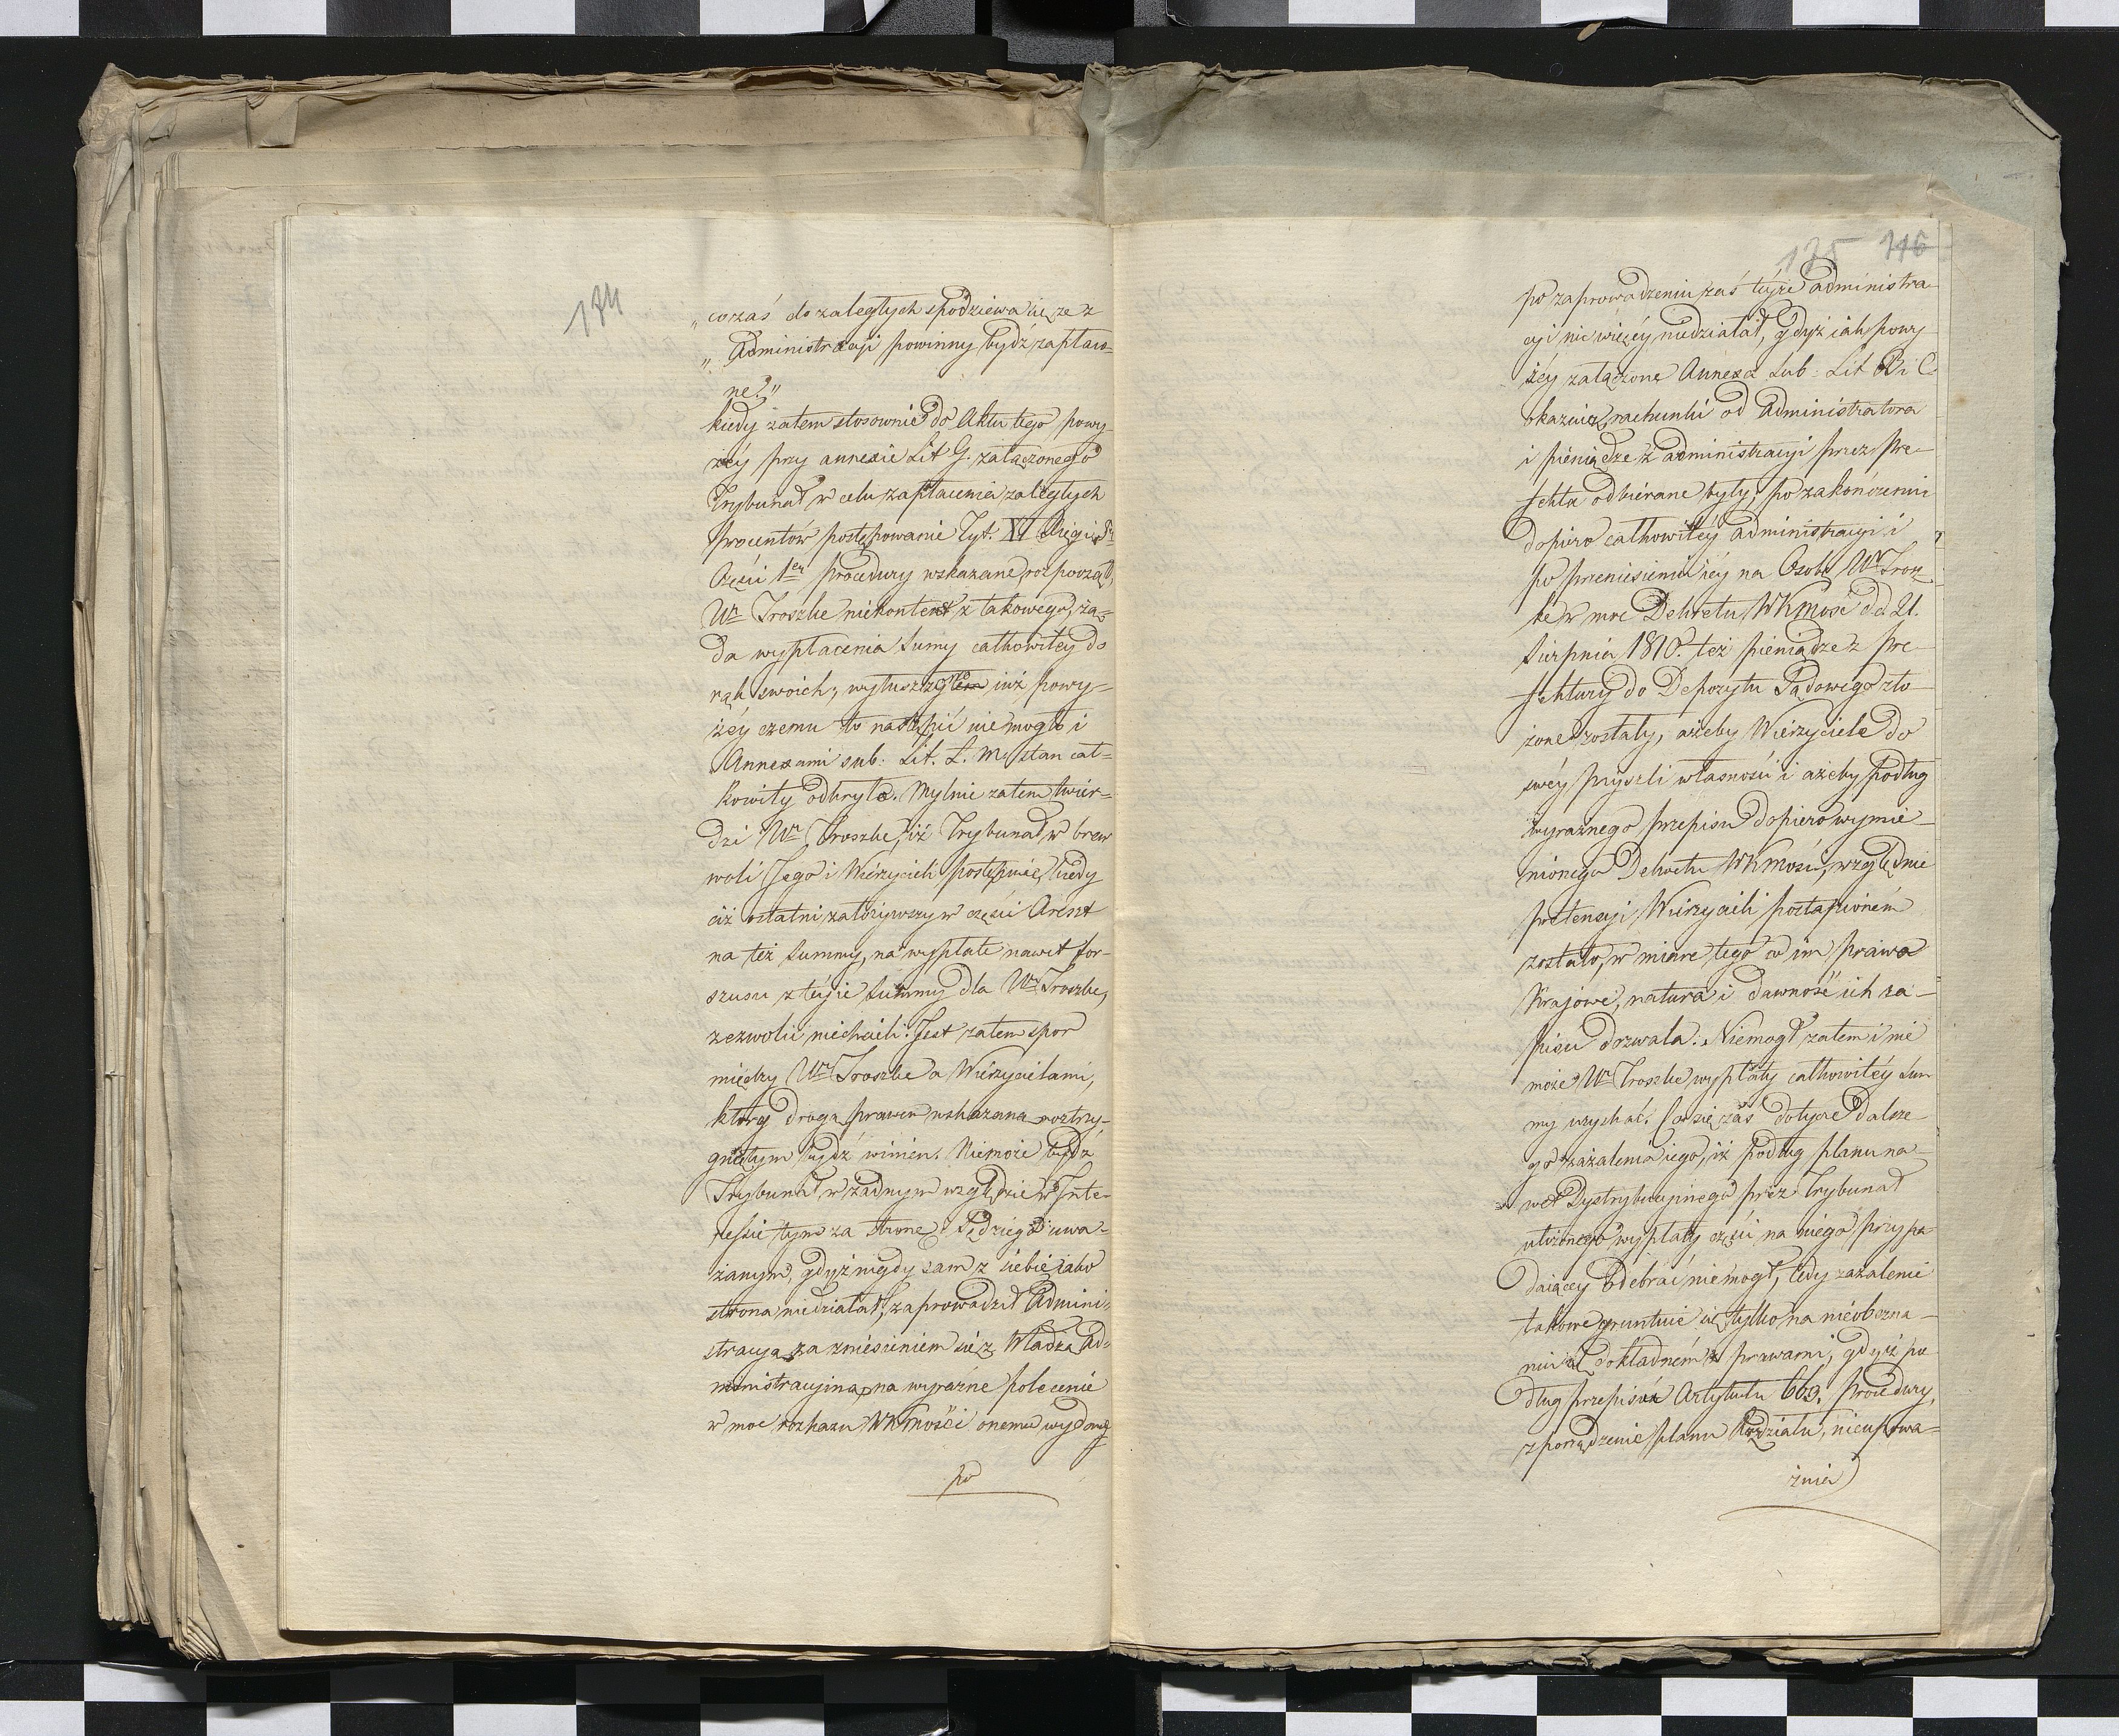 174
„ co zaś do zaległych spodziewa się, że z
„ Administracyi powinny bydź zapłaco-
ne.”
kiedy zatem stosownie do Aktu tego powy-
żéy przy annexie Lit G. załączonego
Trybunał w celu zapłacenia zaległych
procentów postępowanie Tyt. XI Księgi
Części 1er procedury wskazane rozpoczął,
Wn Troszke niekontent z takowego, żą-
da wypłacenia Sumy całkowitey do
rąk swoich, wyłuszczono iuż powy-
żéy czemu to nastąpić nie mogło i
Annexami sub: Lit. L. M. stan cał-
kowity odkryto. Mylnie zatem twier-
dzi Wn Troszke, iż Trybunał w brew
woli Jego i Wierzycieli postępuie, kiedy
ciż ostatni założywszy w części Areszt
na też Summy, na wypłatę nawet for-
szusu z téyże Summy dla Wo Troszke,
zezwolić niechcieli. Jest zatem spor
między Wm Troszke a Wierzycielami,
ktory drogą prawem wskazaną roztrzy-
gniętym bydź winien. Niemoże bydź
Trybunał w żadnym względzie w Inte-
ressie tym za stronę Sędziego uwa-
żanym, gdyż nigdy sam z siebie iako
strona niedziałał, zaprowadził Admini-
stracyą za zniesieniem się z Władzą Ad-
ministracyiną, na wyraźne polecenie
w moc rozkazu WKMości onemu wydany
po
175 116
po zaprowadzeniu zaś teyże administra-
cyi nic więcéy niedziałał, gdyż iak powy
żéy załączone Annexa sub: Lit B i C.
okazuią, rachunki od Administratora
i pieniądze z administracyi przez Pre-
fekta odbiérane były, po zakończeniu
dopiero całkowitéy administracyi i
po przeniesieniu iéy na Osobę Wo Trosz
ke w moc Dekretu WKMość dd. 21.
Sierpnia 1810. też pieniądze z Pre-
fektury do Depozytu Sądowego zło-
żone zostały, ażeby Wierzyciele do
swéy przyszli własności i ażeby podług
wyraźnego przepisu dopiero wymie-
nionego Dekretu WKMości, względnie
pretensyi Wierzycieli postąpioném
zostało, w miarę tego co im prawa
Kraiowe, natura i dawność ich za-
pisu dozwala. Niemogł zatem i nie
może Wn Troszke wypłaty całkowitéy Sum
my uzyskać. Co się zaś dotycze dalsze-
go zażalenia iego, iż podług planu na-
wet Dystrybucyinego przez Trybunał
ułożonego wypłaty części na niego przypa-
daiącey odebrać niemogł, tedy zażalenie
takowe gruntuie się tylko na nieobezna-
niu się dokładném z prawami, gdyż po
dług przepisu Artykułu 663. Procedury,
zporządzenie planu Podziału, nieupowa-
żnia